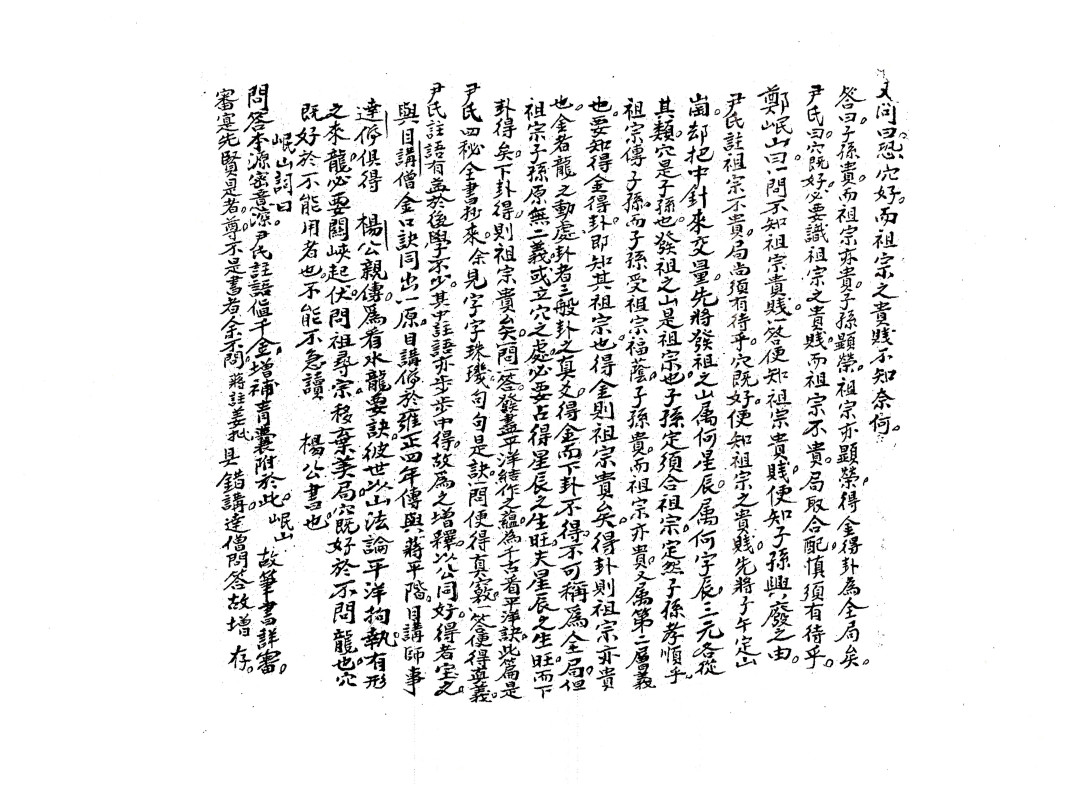 又問曰恐穴好而祖宗之貴賤不知奈何
答曰子孫貴而祖宗亦貴子孫顯榮祖宗亦顯榮得金得卦為全局矣
尹氏曰穴既好必要識祖宗之貴賤而祖宗不貴局取合配慎須有待乎
鄭岷山曰一問不知祖宗貴賤一答便知祖宗貴賤便知子孫興廢之由
尹氏註祖宗不貴局尚須有待乎穴既好便知祖宗之貴賤先將子午定山
崗却把中針來交量先將發祖之山属何星辰属何字辰三元各從
其類穴是子孫也發祖之山是祖宗也子孫定須合祖宗定然子孫孝順乎
祖宗傳子孫而子孫受祖宗福蔭子孫貴而祖宗亦貴又属第二層義
也要知得金得卦即知其祖宗也得金則祖宗貴矣得卦則祖宗亦貴
也金者龍之動處卦者三般卦之真爻得金而下卦不得不可稱為全局但
祖宗子孫原無二義或立穴之處必要占得星辰之生旺夫星辰之生旺而下
卦得矣下卦得則祖宗貴矣一問一答發盡平洋結作之蘊為千古看平洋訣此篇是
尹氏四秘全書抄來余見字字珠璣句句是訣一問便得真竅一答便得真義
尹氏註語有益於後學不少其中註語亦步步中得故為之增釋以公同好得者宝之
與目講僧金口訣同出一原目講僧於雍正四年傳與蔣平階目講師事
達僧俱得 楊公親傳為看水龍要訣彼世以山法論平洋拘執有形
之來龍必要關峽起伏問祖尋宗移棄美局穴既好於不問龍也穴
既好於不能用者也不能不急讀 楊公書也
岷山詞曰
問答本源密意深尹氏註語值千金增補青囊附於此岷山 故筆書詳審
審定先賢是者尊不是書者余不問蔣註姜抵具錯講達僧問答故增存